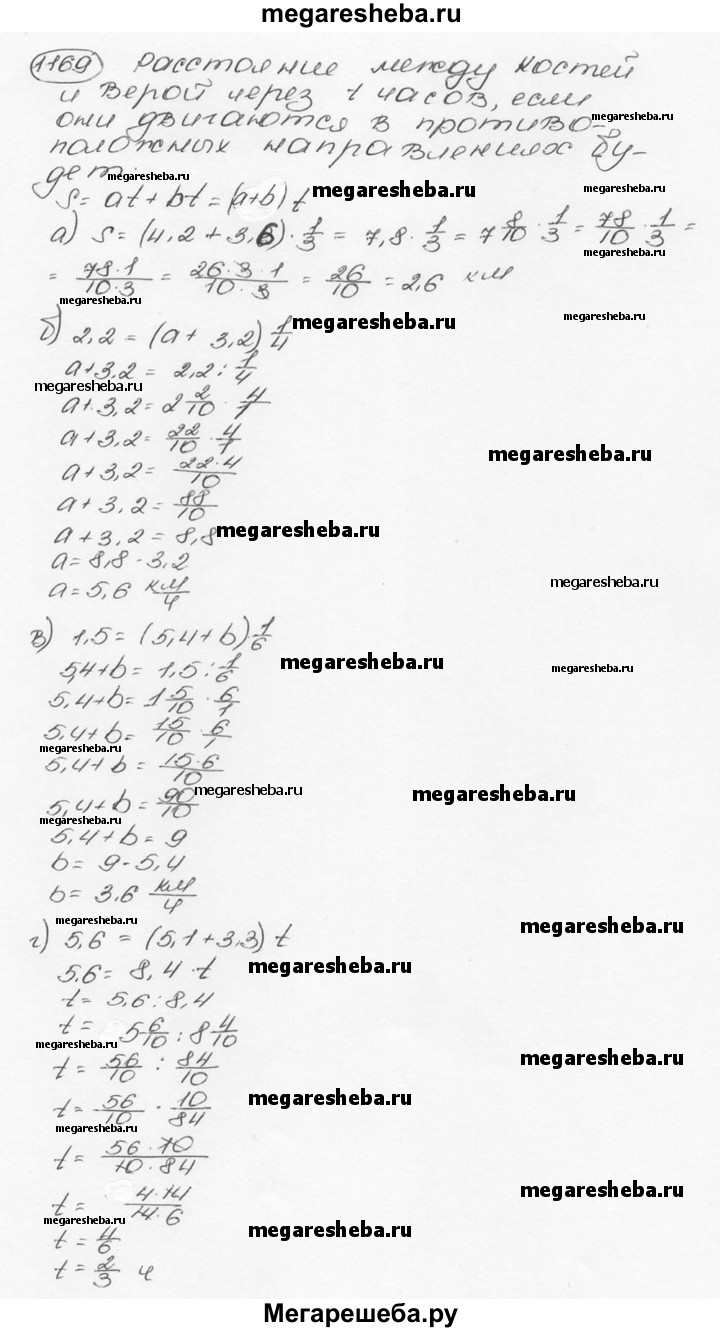 megaresheba.ru
1169 Расстояние между Костей
и Верой через t часов, если
megaresheba.ru
они двигаются в противо-
положных направлениях бу-
дет:
megaresheba.ru
S = at + bt = (a+b) t
а) S = (4,2 + 3,6) · 1/3 = 7,8 · 1/3 = 7 8/10 · 1/3 = 78/10 · 1/3 =
megaresheba.ru
= 78·1/10·3 = 26·3·1/10·3 = 26/10 = 2,6 км
megaresheba.ru
б) 2,2 = (a + 3,2) 1/4
megaresheba.ru
megaresheba.ru
a+3,2 = 2,2 : 1/4
megaresheba.ru
a+3,2 = 2 2/10 · 4/1
a+3,2 = 22/10 · 4/1
megaresheba.ru
a+3,2 = 22·4/10
a+3,2 = 88/10
a+3,2 = 8,8
megaresheba.ru
a = 8,8 - 3,2
a = 5,6 км/ч
megaresheba.ru
в) 1,5 = (5,4+b) · 1/6
5,4+b = 1,5 : 1/6
megaresheba.ru
megaresheba.ru
5,4+b = 1 5/10 · 6/1
5,4+b = 15/10 · 6/1
megaresheba.ru
5,4+b = 15·6/10
megaresheba.ru
megaresheba.ru
5,4+b = 90/10
megaresheba.ru
5,4+b = 9
b = 9-5,4
b = 3,6 км/ч
megaresheba.ru
megaresheba.ru
г) 5,6 = (5,1+3,3) t
5,6 = 8,4 · t
megaresheba.ru
t = 5,6 : 8,4
t = 5 6/10 : 8 4/10
megaresheba.ru
megaresheba.ru
t = 56/10 : 84/10
t = 56/10 · 10/84
megaresheba.ru
megaresheba.ru
t = 56·10/10·84
t = 4·14/14·6
megaresheba.ru
megaresheba.ru
megaresheba.ru
t = 4/6
t = 2/3 ч
Мегарешеба.ру